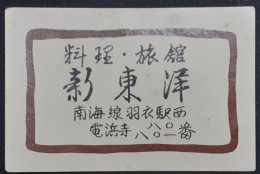 料理・旅舘
新東洋
南海線羽衣駅西
電浜寺八〇八〇一番